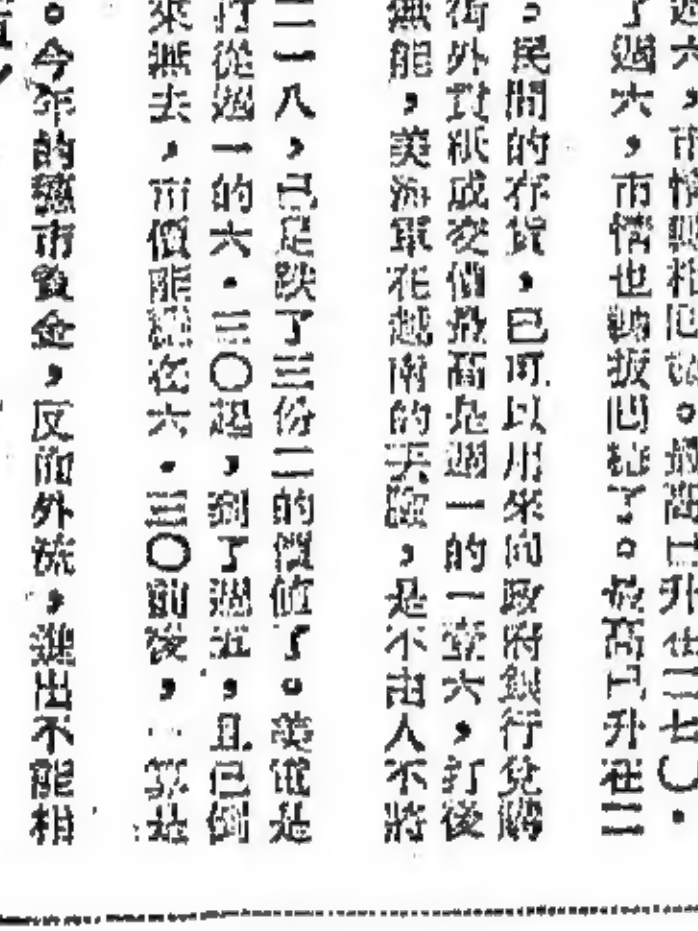 週六，市情轉相回穩。最高已升在二七〇．
了週六，市情也轉扳回穩了。最高已升在二
，民間的存貨，已可以用來向政府銀行兌購
街外貨紙成交價最高是週一的一壹六，打後
無能，美海軍在越南的天險，是不由人不將
二一八，已足跌了三份二的價值了。美電是
打從週一的六．三〇起，到了週五，且已倒
來無去，市價能穩在六．三〇前後，算是
。今年的舊市資金，反而外流，進出不能相